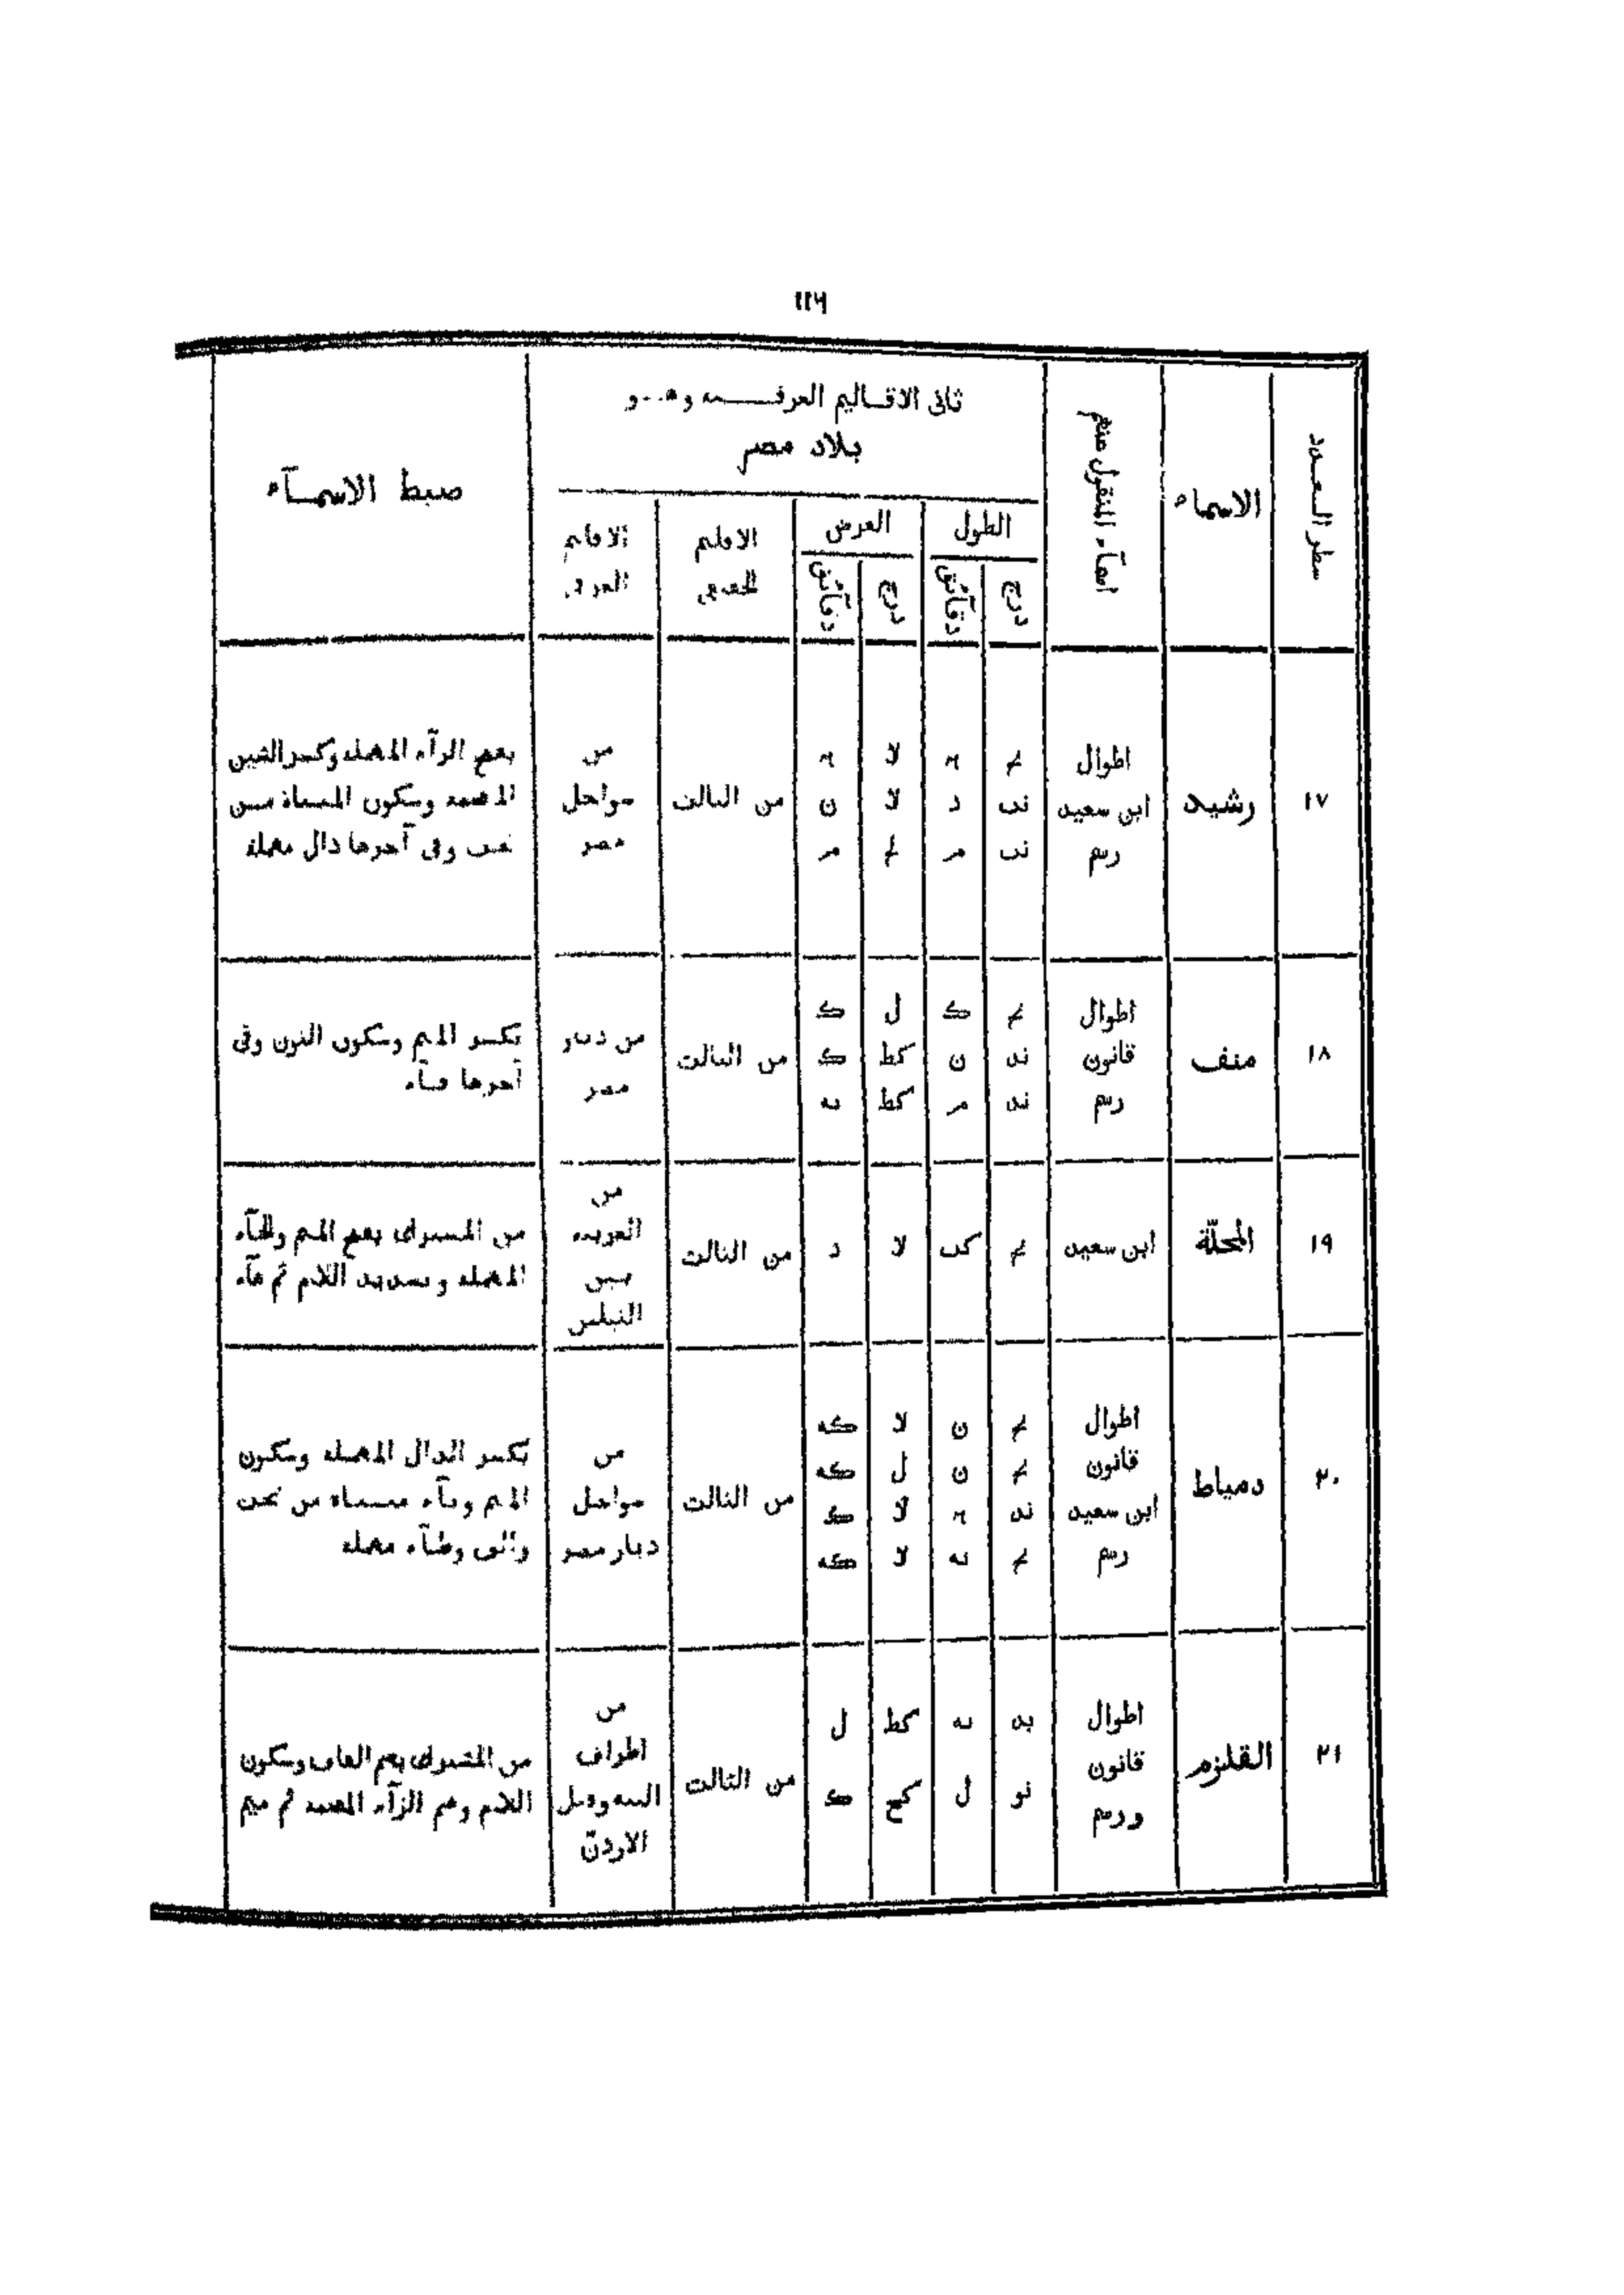 ١١٦
سطر العدد
الاسماء
اسمآء المنقول عنهم
ثانى الاقاليم العرفيه وهو
بلاد مصر
الطول
درج
دقآئق
العرض
درج
دقآئق
الاقليم
الحقيقى
الاقليم
العرفى
ضبط الاسمآء
١٧
رشيد
اطوال
ابن سعيد
رسم
ند
د
لا
ن
ند
م
م
لا
من الثالث
من
سواحل
مصر
بفتح الرآء المهملة وكسر الشين
المعجمة وسكون المثناة من
تحت وفى آخرها دال مهملة
١٨
منف
اطوال
قانون
رسم
ك
ل
ك
ند
ن
كط
ك
ند
م
كط
نه
من الثالث
من ديار
مصر
بكسر الميم وسكون النون وفى
آخرها فآء
١٩
المحلّة
ابن سعيد
كب
لا
د
من الثالث
من
الغربية
بين
النيلين
من المشترك بفتح الميم والحآء
المهملة وتشديد اللام ثم هآء
٢٠
دمياط
اطوال
قانون
ابن سعيد
رسم
ن
لا
كه
ن
ل
كه
ند
لا
ك
نه
لا
كه
من الثالث
من
سواحل
ديار مصر
بكسر الدال المهملة وسكون
الميم ويآء مثناة من تحت
والف وطآء مهملة
٢١
القلزم
اطوال
قانون
ورسم
ند
نه
كط
ل
نو
ل
كح
ك
من الثالث
من
اطراف
التيه وقيل
الاردنّ
من المشترك بضم القاف وسكون
اللام وضم الزآء المعجمة ثم ميم